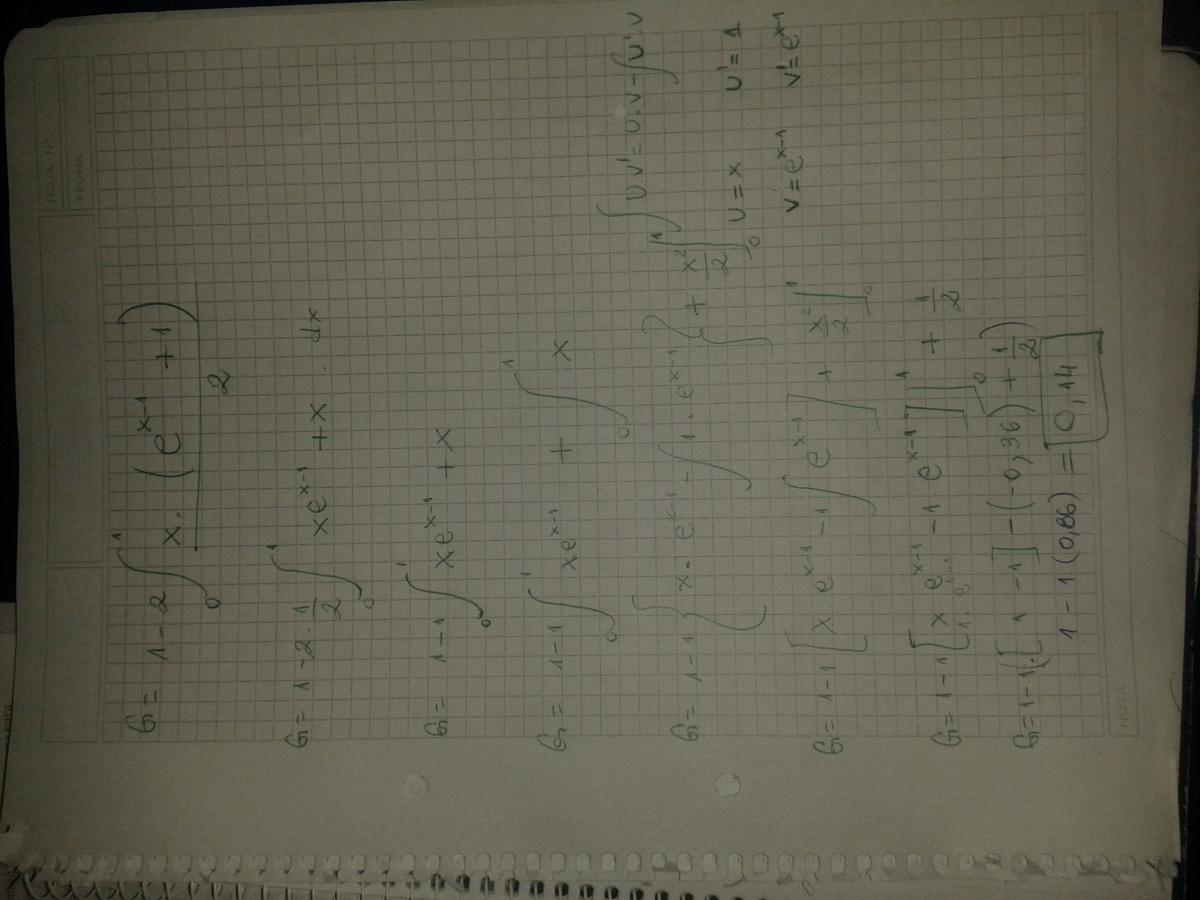 HOJA Nº
FECHA
G = 1 - 2 ∫₀¹ x · (e^(x-1) + 1) / 2
G = 1 - 2 · 1/2 ∫₀¹ xe^(x-1) + x · dx
G = 1 - 1 ∫₀¹ xe^(x-1) + x
G = 1 - 1 ∫₀¹ xe^(x-1) + ∫₀¹ x
∫ U V' = U.V - ∫ U'.V
G = 1 - 1 { x · e^(x-1) - ∫ 1 · e^(x-1) } + x²/2 |₀¹
U = x U' = 1
V = e^(x-1) V' = e^(x-1)
G = 1 - 1 [ x · e^(x-1) - 1 ∫ e^(x-1) ] + x²/2 |₀¹
G = 1 - 1 [ x e^(x-1) - 1 · e^(x-1) ]₀¹ + 1/2
G = 1 - 1 ( [ 1 - 1 ] - (-0,36) + 1/2 )
1 - 1 (0,86) = 0,14
NOTA